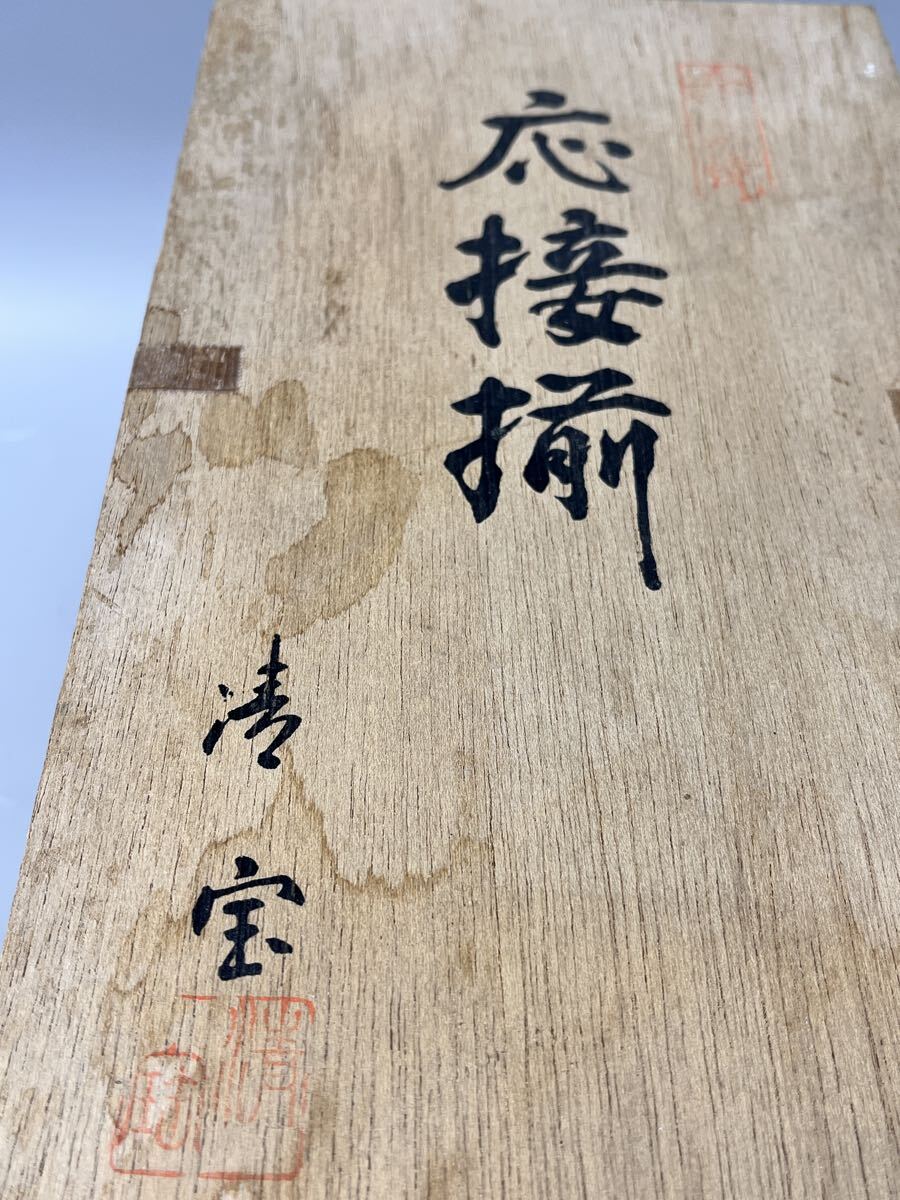 応接揃
清宝